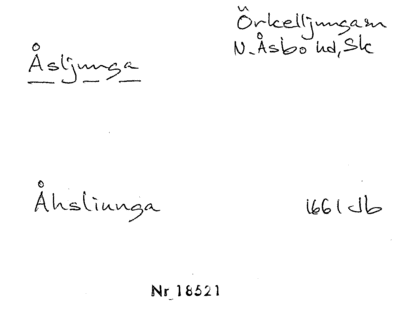 Örkelljunga sn
Åsljunga N. Åsbo hd, Sk
Åhsliunga 1661 Jb
Nr 18521